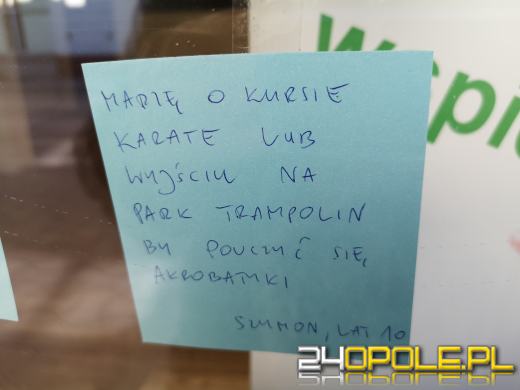 Wspie
MARZĘ O KURSIE
KARATE LUB
WYJŚCIU NA
PARK TRAMPOLIN
BY POUCZYĆ SIĘ
AKROBATYKI
SZYMON, LAT 10
24OPOLE.PL